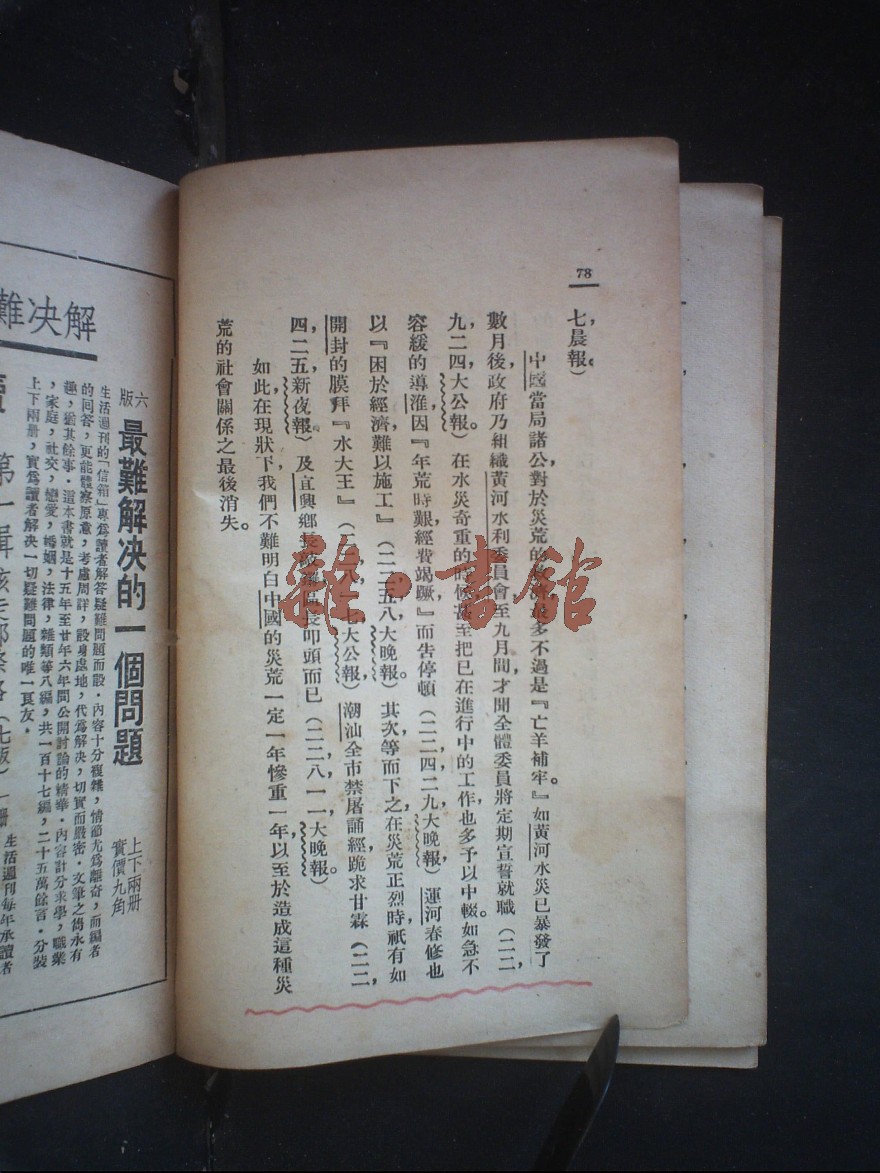 78
七，晨報）。
中國當局諸公對於災荒的多不過是『亡羊補牢』。如黃河水災已暴發了
數月後，政府乃組織黃河水利委員會，至九月間，才聞全體委員將定期宣誓就職（二二，
九，二四，大公報）。在水災奇重的時候，甚至把已在進行中的工作也多予以中輟。如急不
容緩的導淮，因『年荒時艱，經費竭蹶』而告停頓（二二，四，二九，大晚報）運河春修也
以『困於經濟，難以施工』（二二，五，八，大晚報）。其次，等而下之，在災荒正烈時，祇有如
開封的膜拜『水大王』（二二，八，一七，大公報）潮汕全市禁屠誦經跪求甘霖（二二，
四，二五，新夜報）及宜興鄉長區長叩頭而已（二二，八，一一，大晚報）。
如此，在現狀下，我們不難明白中國的災荒一定一年慘重一年，以至於造成這種災
荒的社會關係之最後消失。
雜·書館
解決難
六版
最難解決的一個問題
上下兩册
實價九角
生活週刊的「信箱」專爲讀者解答疑難問題而設·內容十分複雜，情節尤爲離奇，而編者
的回答，更能體察原意，考慮周詳，設身處地，代爲解決，切實而嚴密·文筆之雋永有
趣，猶其餘事·這本書就是十五年至廿年六年間公開討論的精華·內容計分求學，職業
，家庭，社交，戀愛，婚姻，法律，雜類等八編，共一百十七編，二十五萬餘言·分裝
上下兩册，實爲讀者解決一切疑難問題的唯一良友·
第一輯（七版）一册
生活週刊每年承讀者